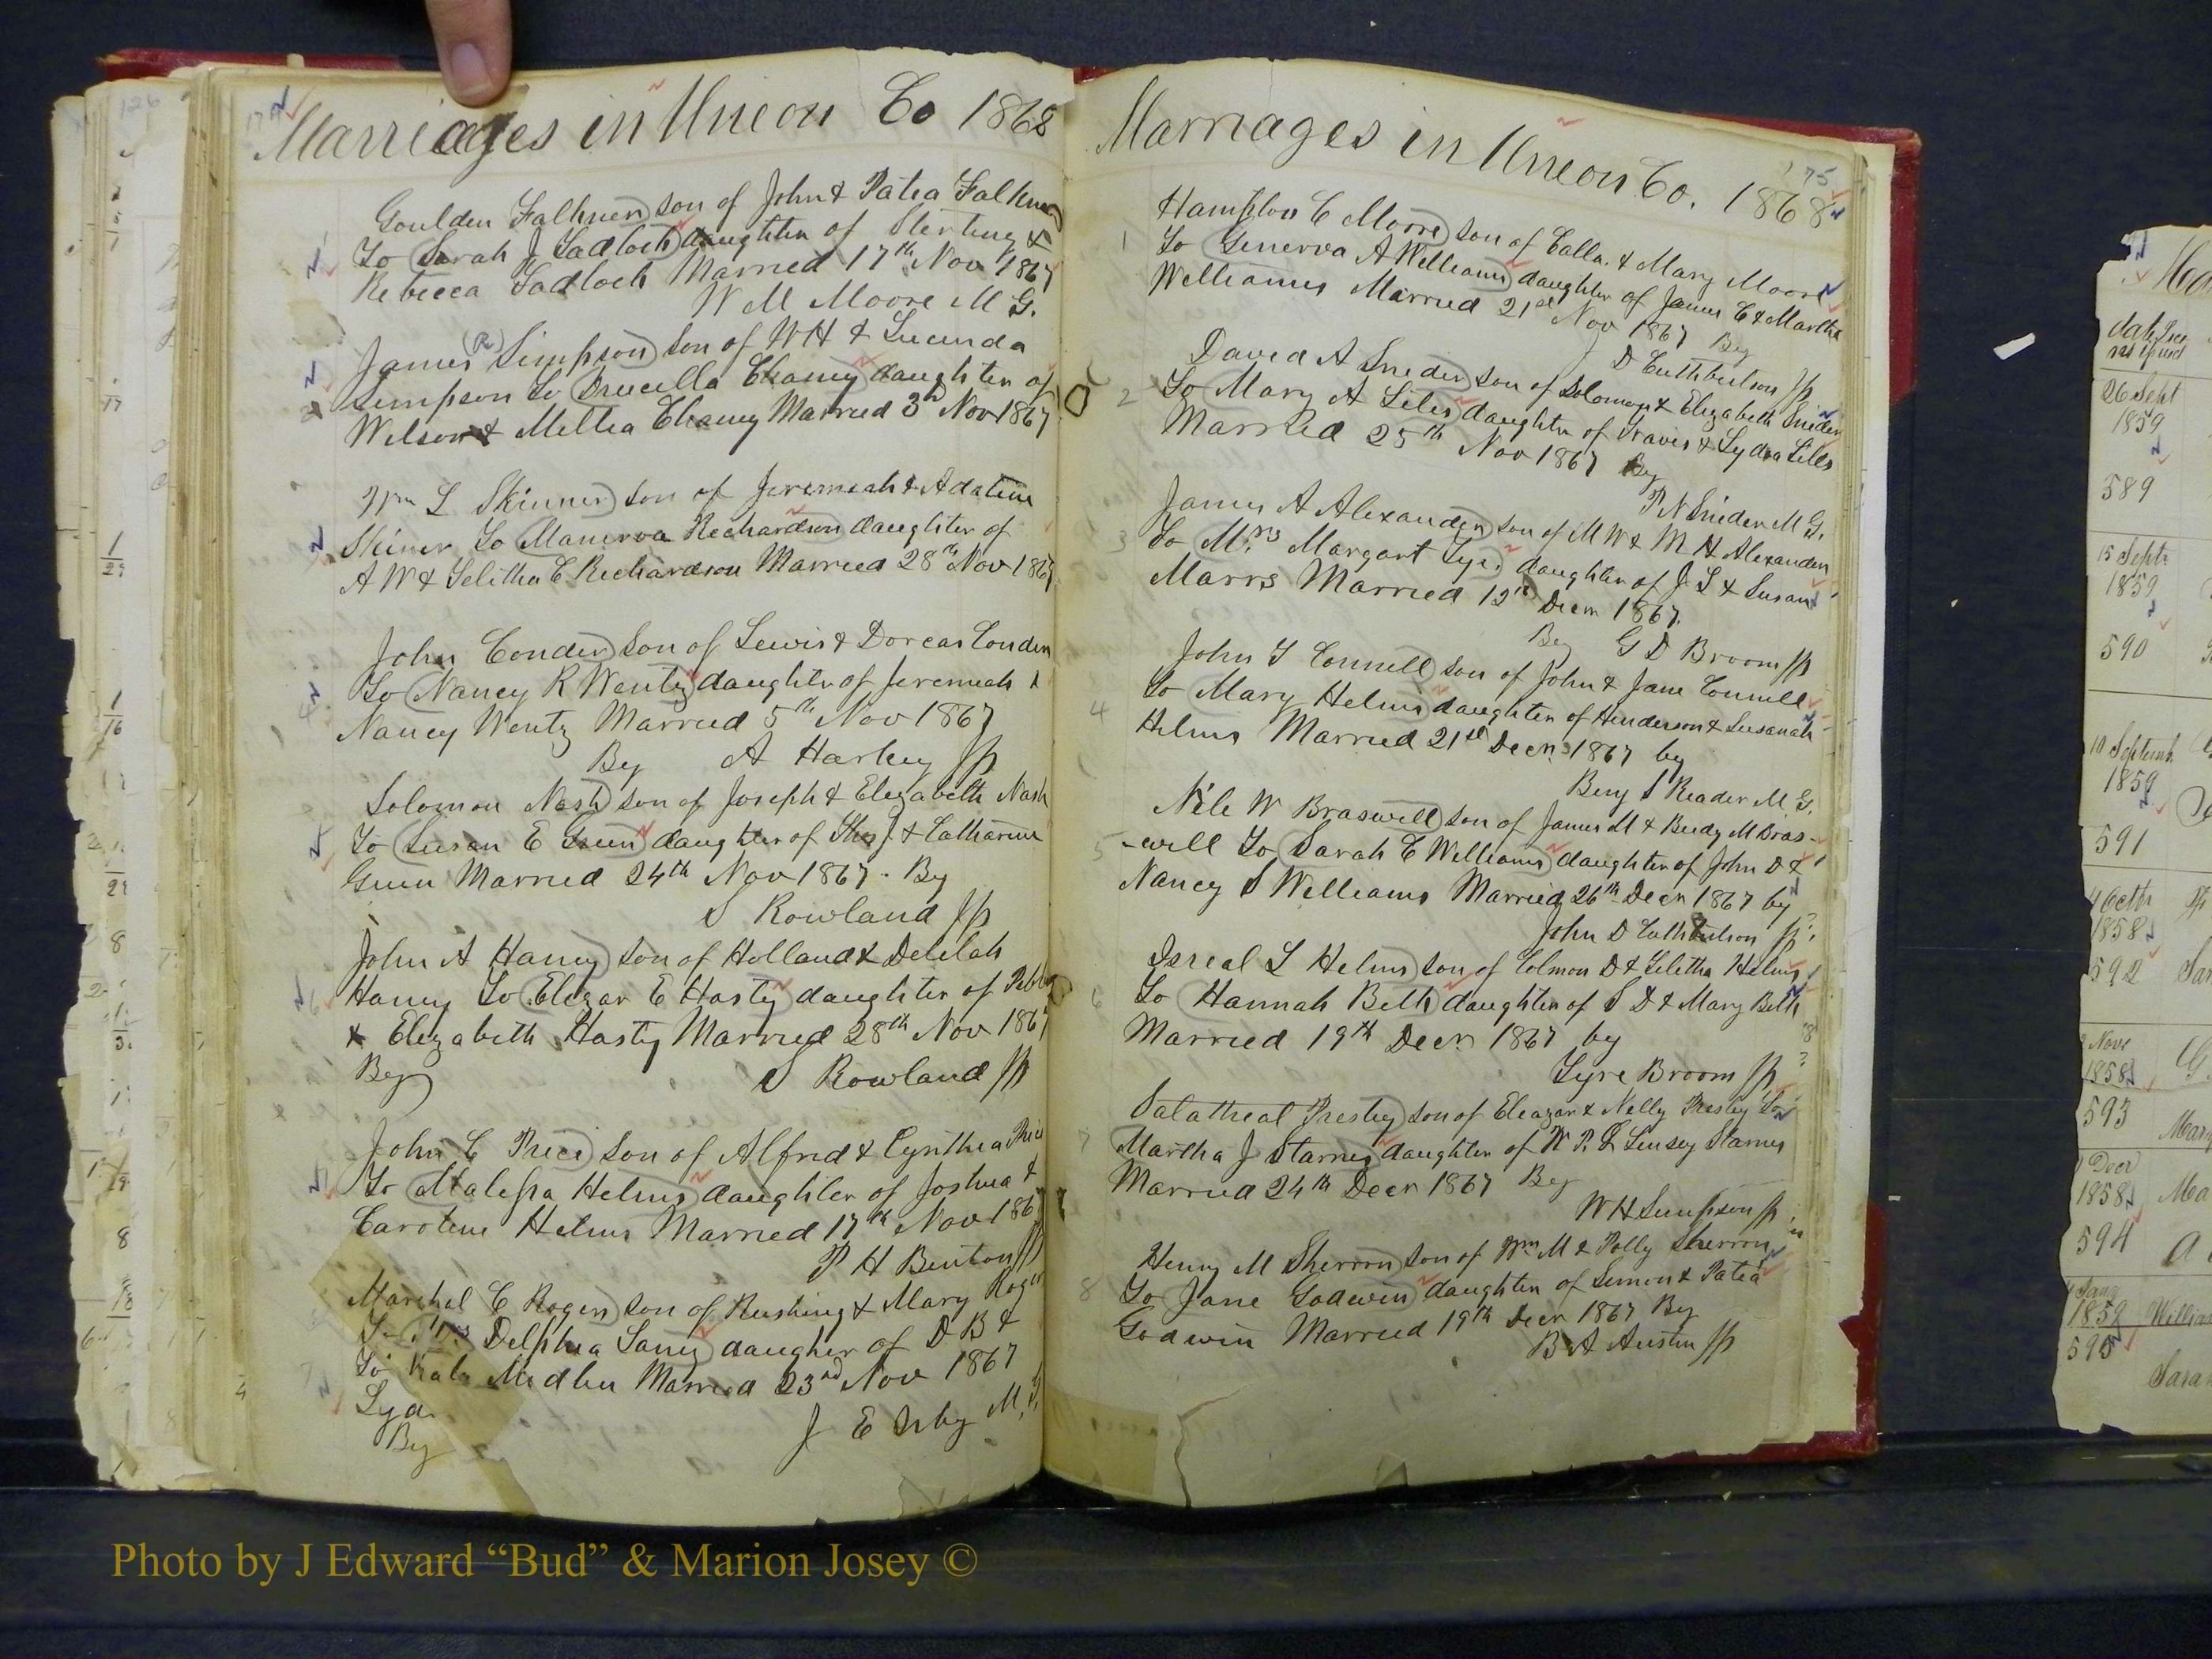 174
Marriages in Uneon Co 1868
Goulden Falkner son of John & Patia Falkner
To Sarah J Tadlock daughter of Sterling &
Rebecca Tadlock Married 17th Nov 1867
W M Moore M G.
James (R) Simpson son of W H & Lucinda
Simpson To Drucilla Chaney daughter of
Wilson & Millia Chaney Married 3d Nov 1867
Wm L Skinner son of Jeremiah & Adaline
Skiner To Manerva Rechardson daughter of
A W & Telitha C Richardson Married 28th Nov 1867
John Conder son of Lewis & Dorcas Conder
To Nancy R Wentz daughter of Jeremiah &
Nancy Wentz Married 5th Nov 1867
By A Harkey Jp
Solomon Nash son of Joseph & Elezabeth Nash
To Susan E Green daughter of Thos J. & Catharine
Green Married 24th Nov 1867. By
S Rowland Jp
John A Haney son of Holland & Delilah
Haney To Elezar E Hasty daughter of
& Elezabeth Hasty Married 28th Nov 1867
By S Rowland Jp
John C Price son of Alfred & Cynthia Price
To Malissa Helms daughter of Joshua &
Caroline Helms Married 17th Nov 1867
P H Benton Jp
Marshal C Rogers son of Rushing & Mary Rogers
To Mrs Delphia Laney daugher of D B &
Medlin Married 23rd Nov 1867
Lyda
By J E M.G.
175
Marriages in Uneon Co. 1868
Hampton C Moore son of Calla. & Mary Moore
1 To Generva A Welliams daughter of James C & Martha
Welliams Married 21st Nov 1867 By
D Cuthbertson Jp
David A Snider son of Solomon & Elizabeth Snider
2 To Mary A Liles daughter of Travis & Lydia Liles
Married 25th Nov 1867 By
P N Snider M G.
James A Alexander son of M W & M H Alexander
3 To Mrs Margart daughter of J L & Susan
Marrs Married 12th Decm 1867.
By G D Broom Jp
John T Connell son of John & Jane Connell
4 To Mary Helms daughter of Henderson & Susanah
Helms Married 21st Decr 1867 by
Benj S Reader M G.
Nile W Braswell son of James M & Beedy M Bras-
5 -well To Sarah E Welliams daughter of John D &
Nancy S Williams Married 26th Decr 1867 by
John D Cuthbertson Jp
Isreal L Helms son of Colmon D & Telitha Helms
6 To Hannah Belk daughter of S D & Mary Belk
Married 19th Decr 1867 by
Tyre Broom Jp
Salatheal Presley son of Eleazar & Nelly Presley To
7 Martha J Starnes daughter of W P. & Linsey Starnes
Married 24th Decr 1867 By
W H Simpson Jp
Henry M Sherron son of Wm M & Polly Sherron
8 To Jane Godwin daughter of Simon & Patia
Godwin Married 19th Decr 1867 By
B A Austin Jp
26 Sept
1859
589
15 Septr
1859
590
10 Septemb
1859
591
4 Octr
1858
592
Nove
1858
593
Decr
1858
594
1859
595
Photo by J Edward “Bud” & Marion Josey ©